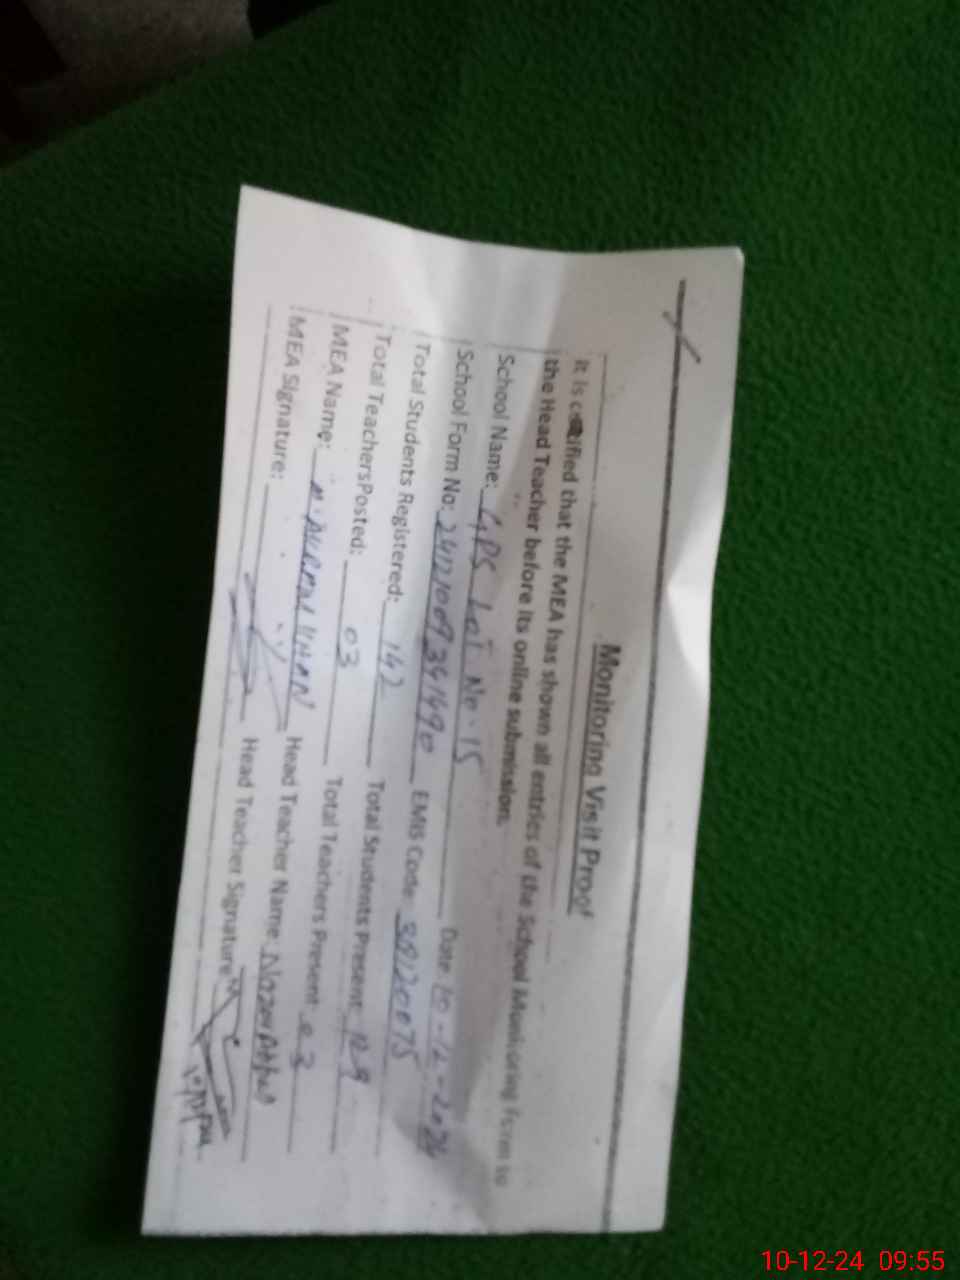 Monitoring Visit Proof
It is certified that the MEA has shown all entries of the School Monitoring form to
the Head Teacher before its online submission.
School Name: GPS Lot No-15 Date: 10-12-2024
School Form No: EMIS Code: 38120075
Total Students Registered: 142 Total Students Present: 129
Total TeachersPosted: 03 Total Teachers Present: 03
MEA Name: Head Teacher Name:
MEA Signature: Head Teacher Signature
10-12-24 09:55